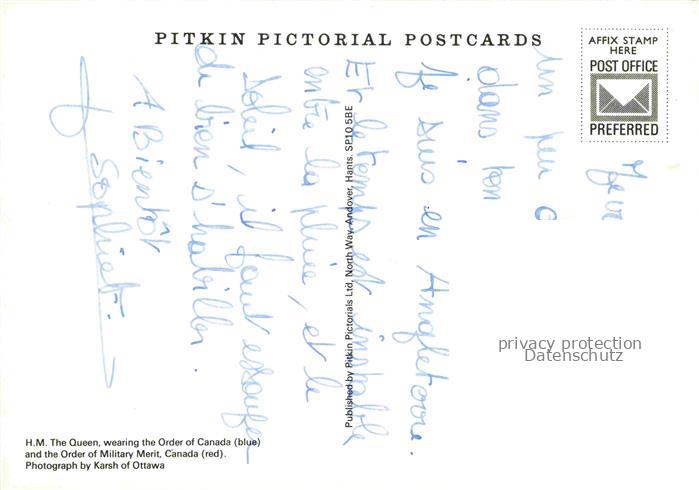 PITKIN PICTORIAL POSTCARDS
AFFIX STAMP
HERE
POST OFFICE
PREFERRED
un peu
dans ton
Je suis en Angleterre.
Et le temps est instable
entre la pluie, et le
soleil, il faut
de bien s'habiller.
A Bientôt
Published by Pitkin Pictorials Ltd, North Way, Andover, Hants. SP10 5BE
privacy protection
Datenschutz
H.M. The Queen, wearing the Order of Canada (blue)
and the Order of Military Merit, Canada (red).
Photograph by Karsh of Ottawa